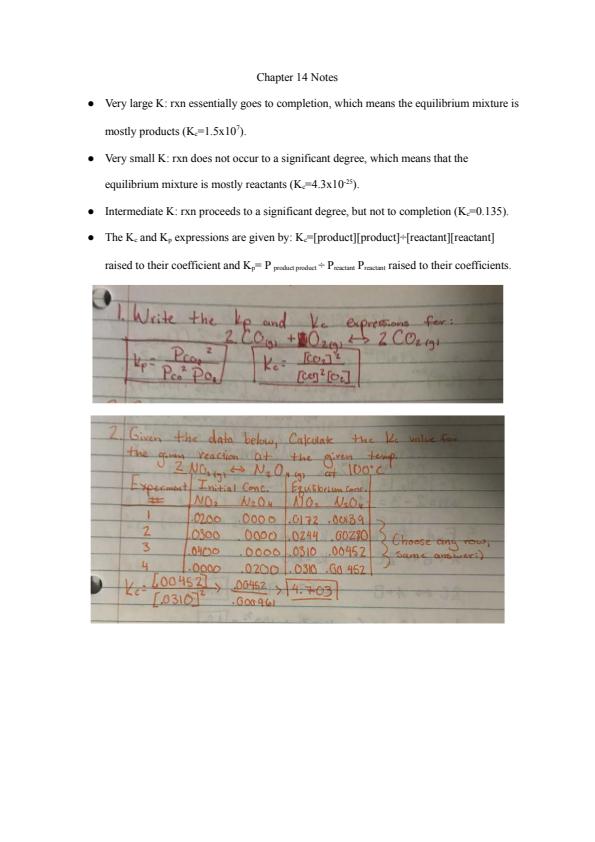 Chapter 14 Notes
● Very large K: rxn essentially goes to completion, which means the equilibrium mixture is
mostly products (Kc=1.5x10⁷).
● Very small K: rxn does not occur to a significant degree, which means that the
equilibrium mixture is mostly reactants (Kc=4.3x10⁻²⁵).
● Intermediate K: rxn proceeds to a significant degree, but not to completion (Kc=0.135).
● The Kc and Kp expressions are given by: Kc=[product][product]÷[reactant][reactant]
raised to their coefficient and Kp= P product product ÷ Preactant Preactant raised to their coefficients.
1. Write the kp and Kc expressions for:
2 CO(g) + O2(g) ↔ 2 CO2(g)
kp = Pco₂² / Pco² Po₂ Kc = [CO₂]² / [CO]²[O₂]
2. Given the data below, Calculate the Kc value for
the given reaction at the given temp.
2 NO2(g) ↔ N2O4(g) at 100°C
Experiment # Initial Conc. Equilibrium Conc.
NO₂ N₂O₄ NO₂ N₂O₄
1 .0200 .0000 .0172 .00139
2 .0300 .0000 .0244 .00280
3 .0400 .0000 .0310 .00452
4 .0000 .0200 .0310 .00452
} Choose any row,
same answer:)
Kc= [.00452] / [.0310]² > .00452 / .000961 > 4.703